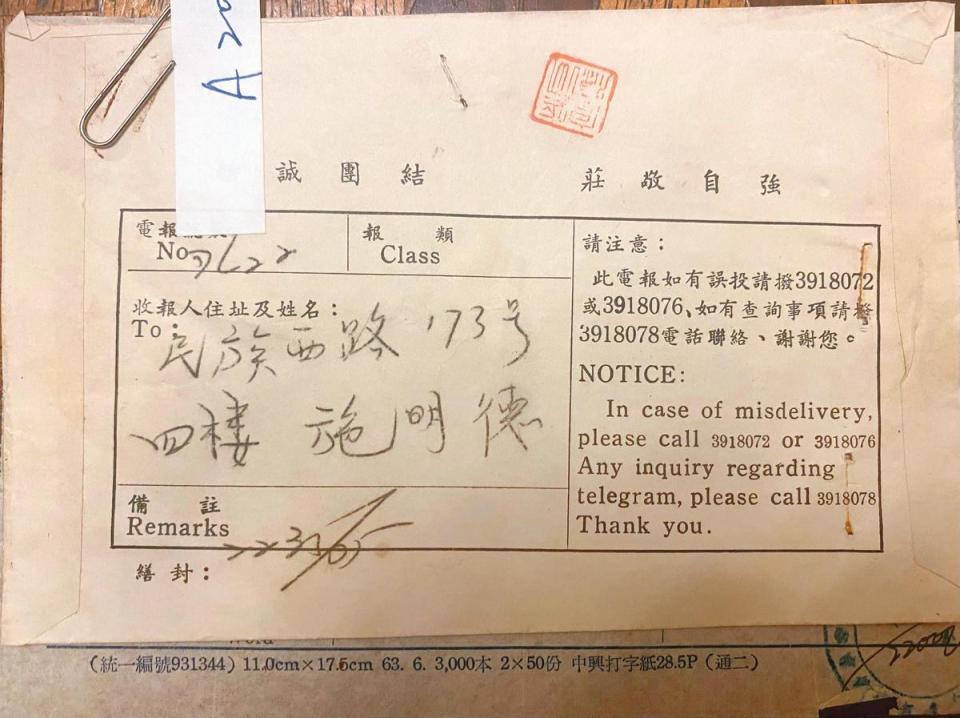 A
誠團結
莊敬自強
電報
No
報類
Class
收報人住址及姓名：
To：
民族西路173号
四楼 施明德
備註
Remarks
繕封：
請注意：
此電報如有誤投請撥3918072
或3918076、如有查詢事項請撥
3918078電話聯絡、謝謝您。
NOTICE:
In case of misdelivery,
please call 3918072 or 3918076
Any inquiry regarding
telegram, please call 3918078
Thank you.
(統一編號931344) 11.0cm×17.5cm 63. 6. 3,000本 2×50份 中興打字紙28.5P (通二)